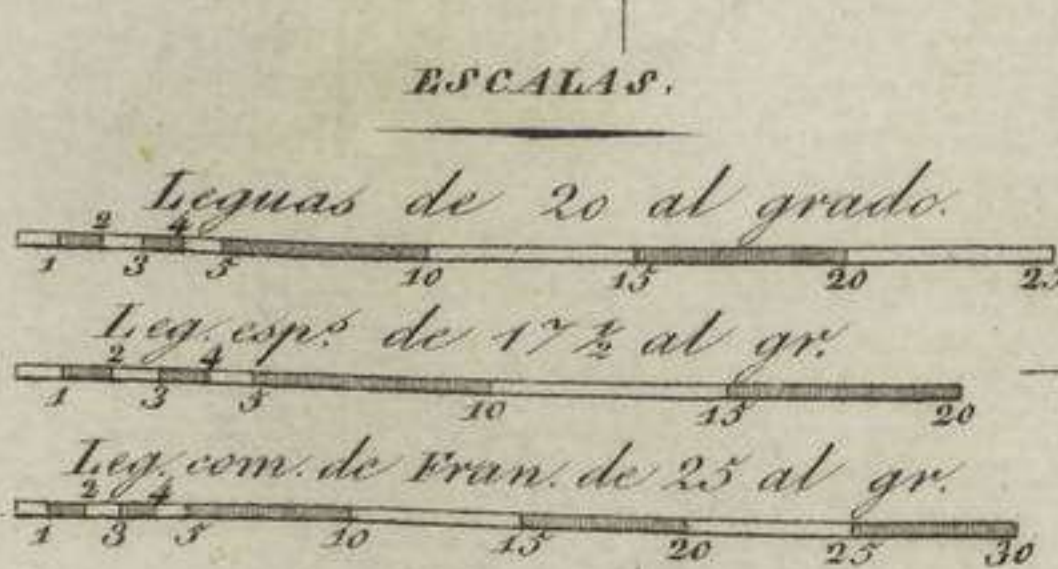 ESCALAS.
Leguas de 20 al grado.
1 2 3 4 5 10 15 20 25
Leg. esp.s de 17 1/2 al gr.
1 2 3 4 5 10 15 20
Leg. com. de Fran. de 25 al gr.
1 2 3 4 5 10 15 20 25 30